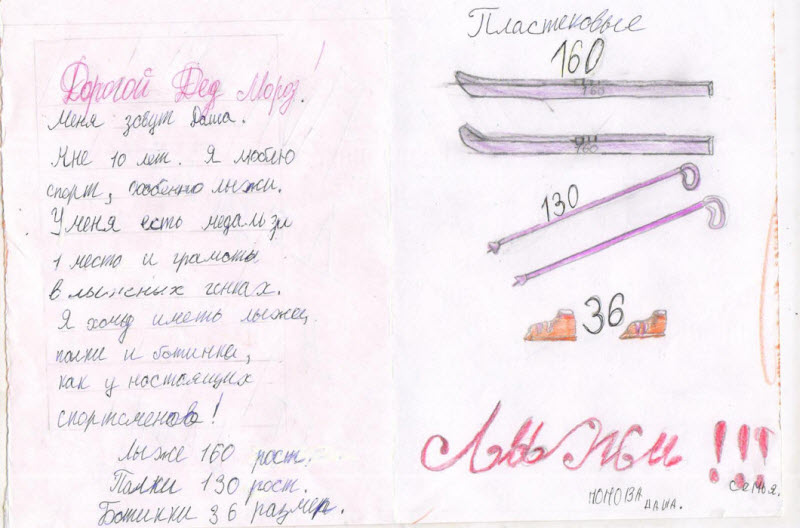 Дорогой Дед Мороз!
Меня зовут Даша.
Мне 10 лет. Я люблю
спорт, особенно лыжи.
У меня есть медаль за
1 место и грамоты
в лыжных гонках.
Я хочу иметь лыжи,
палки и ботинки,
как у настоящих
спортсменов!
Лыже 160 рост.
Палки 130 рост.
Ботикки 36 размер.
Пластековые
160
160
160
130
36
Лыжи!!!
Даша.
Семья.